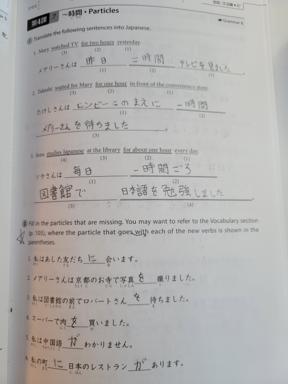 第4課 〜時間・Particles
Grammar 8
A Translate the following sentences into Japanese.
1. Mary watched TV for two hours yesterday.
(3) (2) (1)
メアリーさんは 昨日 二時間 テレビを見ました
(1) (2) (3)
2. Takeshi waited for Mary for one hour in front of the convenience store.
(3) (2) (1)
たけしさんは コンビニのまえに 一時間
(1) (2)
メアリーさんを待ちました
(3)
3. studies Japanese at the library for about one hour every day.
(4) (3) (2) (1)
さんは 毎日 一時間ごろ
(1) (2)
図書館で 日本語を勉強しました
(3) (4)
B Fill in the particles that are missing. You may want to refer to the Vocabulary section
(p. 105), where the particle that goes with each of the new verbs is shown in the
parentheses.
1. 私はあした友だち に 会います。
2. メアリーさんは京都のお寺で写真 を 撮りました。
3. 私は図書館の前でロバートさん を 待ちました。
4. スーパーで肉 を 買いました。
5. 私は中国語 が わかりません。
6. 私の町 に 日本のレストラン が あります。